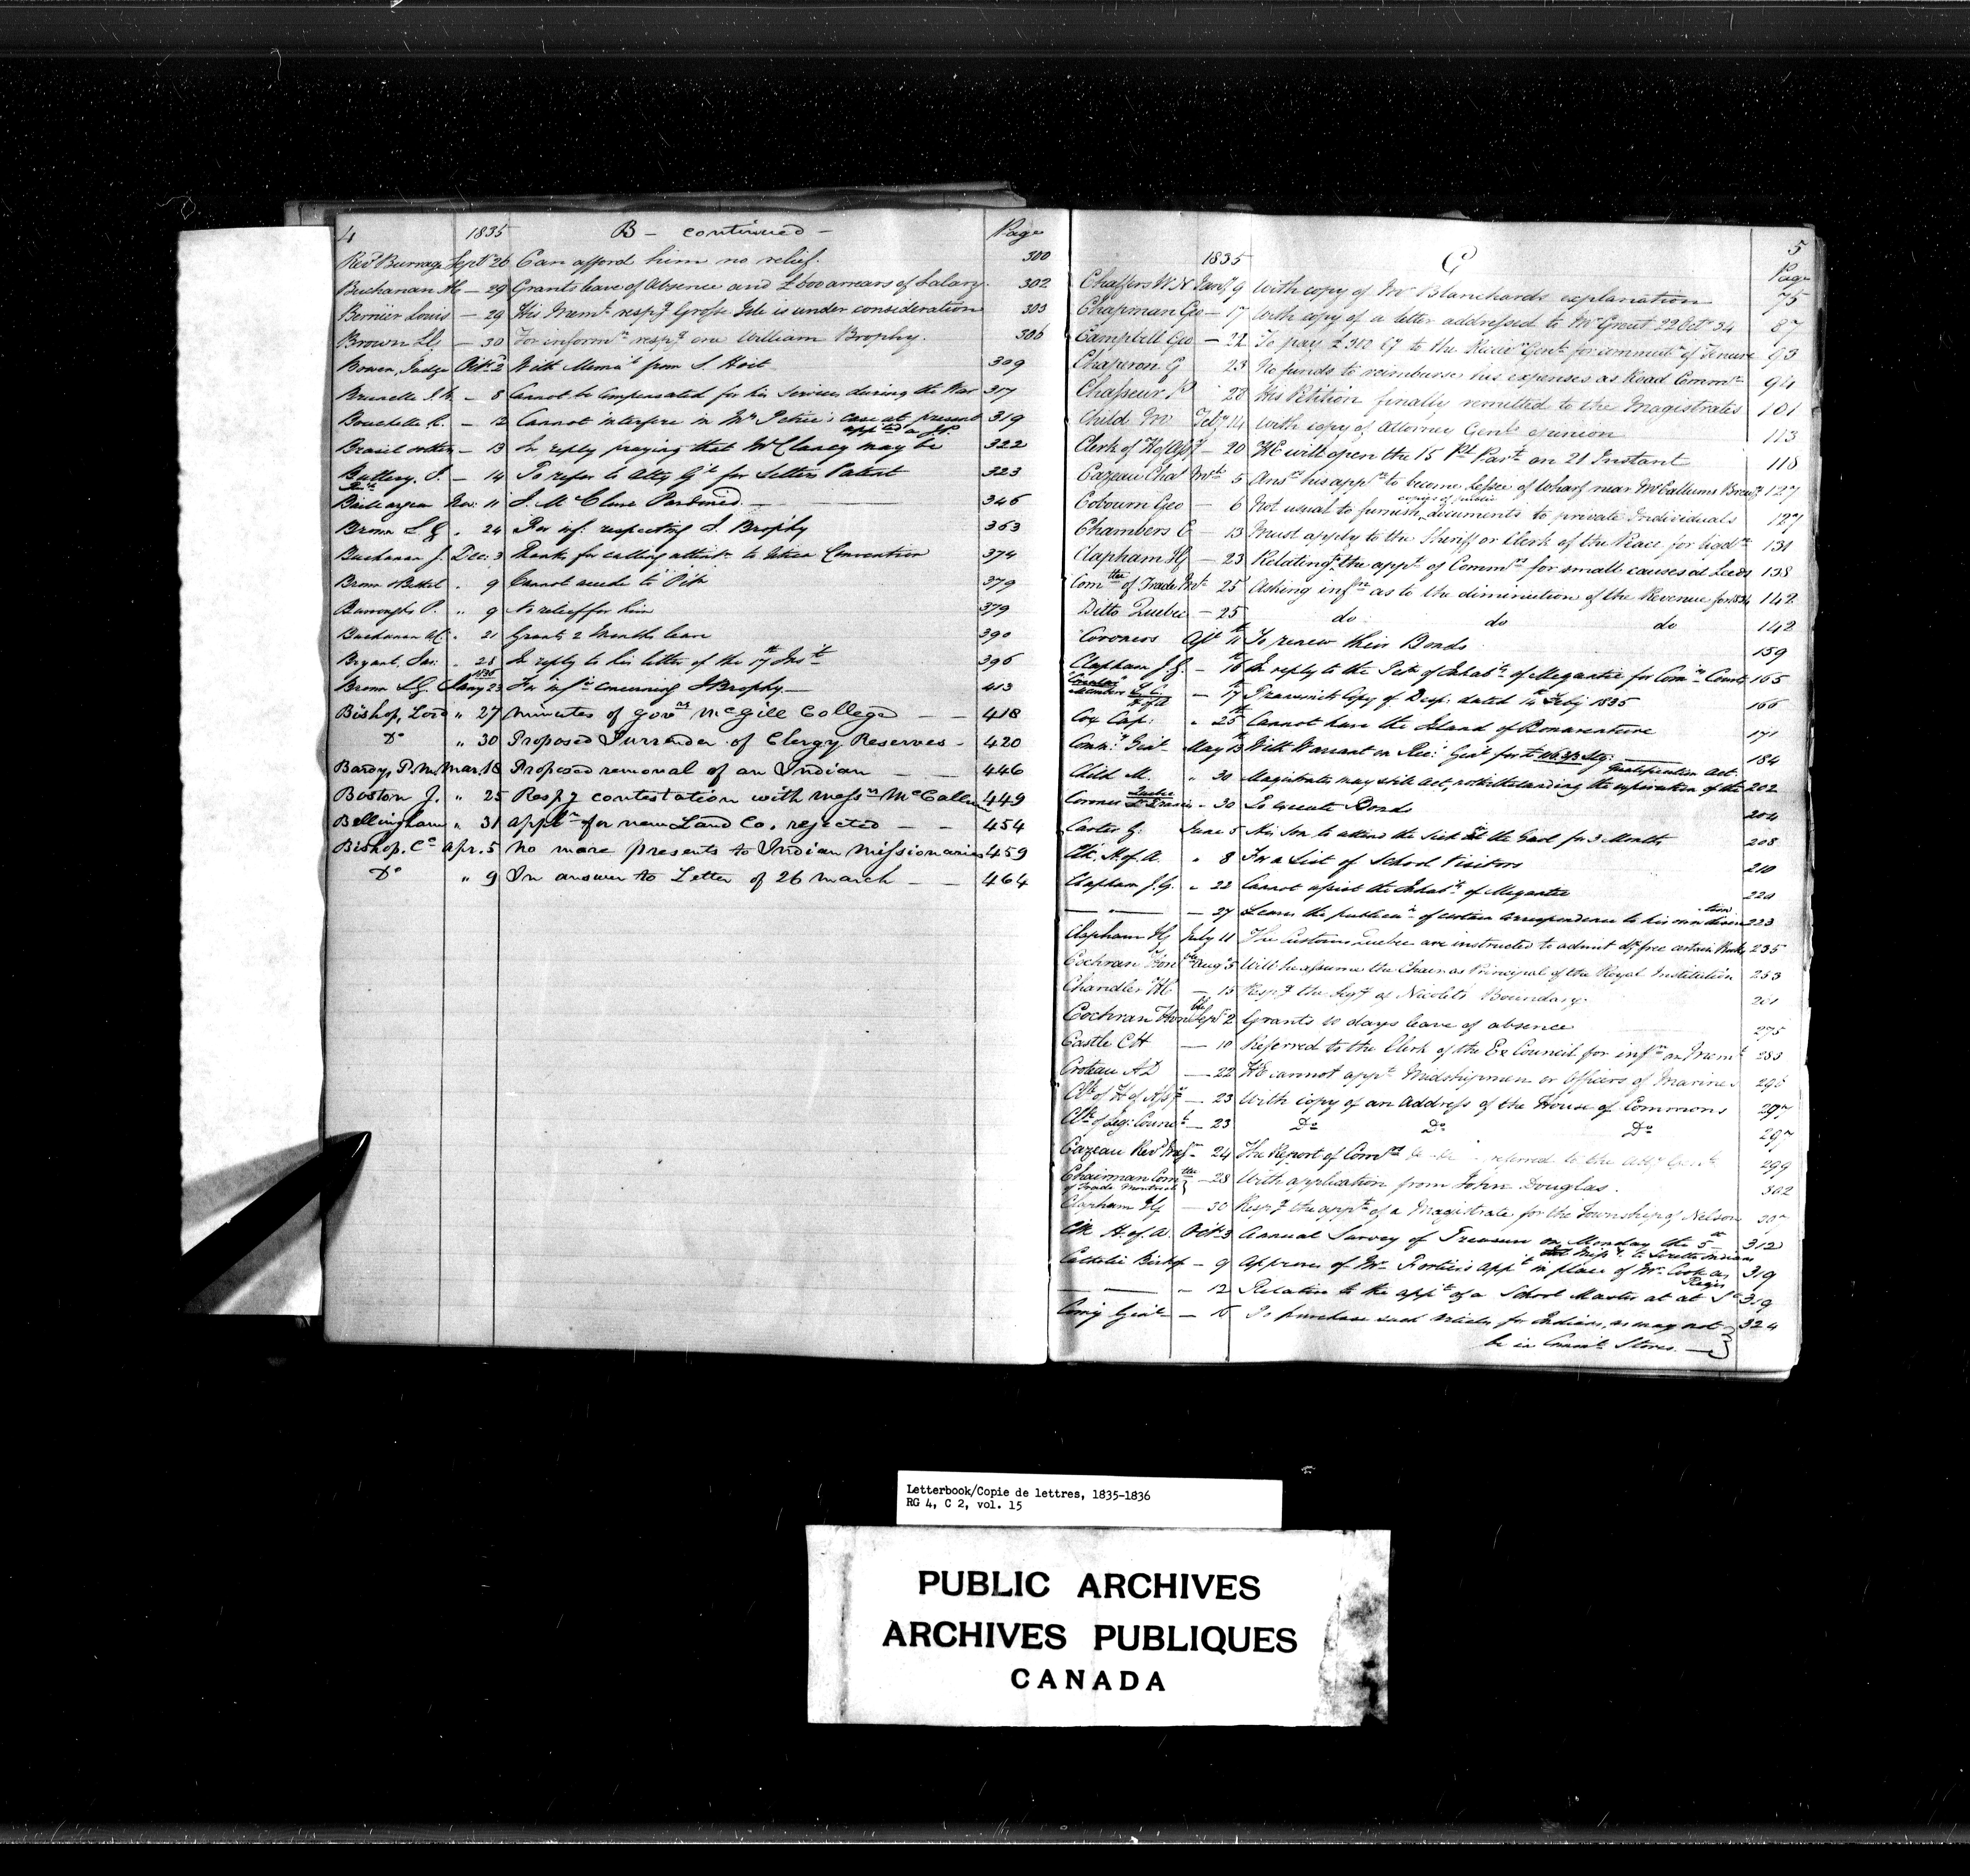 4 1835 B - continued - Page
Revd Burrage Septr 26 Can afford him no relief. 300
Buchanan AC - 29 Grants leave of Absence and £600 arrears of Salary. 302
Bernier Louis - 29 His Memt. respg Grosse Isle is under consideration 303
Brown LG - 30 For informn respg one William Brophy. 306
Bowen, Judge Octr. 2 With Meml from S. Hoit 309
Brunelle J. - 8 Cannot be Compensated for his Services during the War 317
Bouchette R. - 12 Cannot interfere in Mr Petrie's case at present 319
appted a J.P.
Brasil - 13 In reply praying that Mr Clancy may be 322
Buttery. J. - 14 To refer to Atty Gl for Letters Patent 323
Baillargeon Nov: 11 J. McClure Pardoned 346
Brown L.G. " 24 For inf. respecting J. Brophy 363
Buchanan J. Dec: 3 Thanks for calling attentn to Utica Convention 374
Brown & " 9 Cannot accede to Petn 379
Burroughs P. " 9 No relief for him 379
Buchanan AC " 21 Grants 2 Months leave 390
Bryant, Jas: " 28 In reply to his letter of the 17th Inst 396
1836
Brown LG. Jany 23 For infn concerning J Brophy 413
Bishop, Lord " 27 minutes of Govrs McGill College - - 418
Do " 30 Proposed Surrender of Clergy Reserves - 420
Bardy, P.M. Mar. 18 Proposed removal of an Indian - - 446
Boston J. " 25 Respg contestation with Messrs McCallum 449
Bellingham " 31 appln for new Land Co. rejected - - 454
Bishop. Cc Apr. 5 No more presents to Indian Missionaries 459
Do " 9 In answer to Letter of 26 March - - 464
5
1835 C Page
Chaffers W.N Jany 9 With copy of Mr Blanchards explanation 75
Chapman Geo - 17 With copy of a letter addressed to Mr Grant 22 Octr 34 87
Campbell Geo - 22 To pay £ to the Recr Genl for commutn of Tenure 93
Chaperon G 23 No funds to reimburse his expenses as Road Commr 94
Chasseur P 28 His Petition finally remitted to the Magistrates 101
Child M Feby 14 With copy of Attorney Genls opinion 113
Clerk of H of Assy - 20 HE will open the 15 Pl Parlt on 21 Instant 118
Cazeau Chal Mch 5 Ansr his appn to become lessee of Wharf near McCallums Brewy 127
copies of public
Coburn Geo - 6 Not usual to furnish documents to private Individuals 127
Chambers E - 13 Must apply to the Sheriff or Clerk of the Peace for 131
Clapham JG - 23 Relating to the appt of Commrs for small causes at Leeds 138
Comttee of Trade Mt 25 Asking infn as to the diminution of the Revenue for 1834 142
Ditto Quebec - 25 do do do 142
Coroners Apl 11th To renew their Bonds 159
Clapham J.G. - 16th In reply to the Petn of Inhabts of Megantic for Comrs Courts 165
Members L.C. H of A - 17th Transmits Copy of Desp: dated 14th Feby 1835 166
Cox Cap: " 25th Cannot have the Island of Bonaventure 171
Comy: Genl May 13 With Warrant on Recr Genl for £ Stg. 184
Qualification Act.
Child M. " 30 Magistrates may still act, notwithstanding the expiration of the 202
Coroner Quebec St Francis - 30 To execute Bonds 204
Carter G: June 5 His Son to attend the Sick at the Gaol for 3 Months 208
Clk. H. of A. " 8 For a List of School Visitors 210
Clapham J.G. " 22 Cannot assist the Inhabts of Megantic 220
- 27 Leaves the publicn of certain correspondence to his own discretion 223
Clapham JG July 11 The Customs Quebec are instructed to admit dy free certain Books 235
Cochran Honble Augt 5 Will he assume the Chair as Principal of the Royal Institution 253
Chandler KC - 15 Respg the Segy of Nicolets Boundary. 261
Cochran Honble Sepr 2 Grants 10 days leave of absence 275
Castle CH - 10 Referred to the Clerk of the Ex Council for infn on Memt 283
Croteau AD - 22 HE cannot appt Midshipmen or Officers of Marines 296
Clk of H of Assy - 23 With copy of an Address of the House of Commons 297
Clk of Leg: Council - 23 Do Do Do 297
Cazeau Revd - 24 The Report of Comrs referred to the Atty Genl 299
Chairman Comttee of Trade Montreal } - 28 With application from John Douglas. 302
Clapham JG - 30 Respg the appt of a Magistrate for the Township of Nelson 307
Clk H. of A. Octr. 3 Annual Survey of Treasury on Monday the 5th 312
Missy. to Lorette Indians
Catholic Bishop - 9 Approves of Mr Fortier's appt in place of Mr Cook as 319
Regis
- 12 Relative to the appt of a School Master at at St 319
Comy Genl - 15 To purchase such articles for Indians, as may not } 324
be in Commt Stores.
Letterbook/Copie de lettres, 1835-1836
RG 4, C 2, vol. 15
PUBLIC ARCHIVES
ARCHIVES PUBLIQUES
CANADA